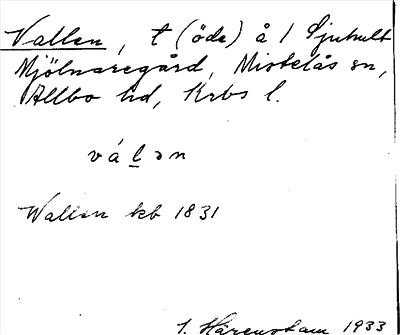 Vallen, t (öde) å 1 Sjuhult
Mjölnaregård, Mistelås sn,
Allbo hd, Krbs l.
vál̲ən
Wallen kb 1831
1. Härenstam 1933